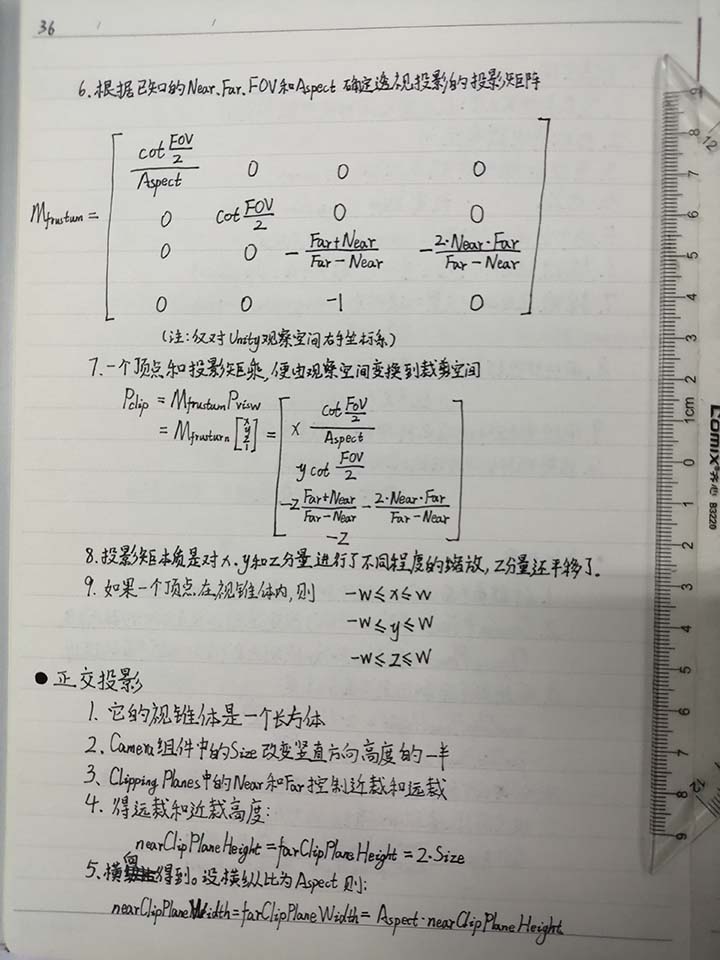 36
6.根据已知的Near、Far、FOV和Aspect确定透视投影的投影矩阵
Mfrustum = [ cot(FOV/2)/Aspect 0 0 0
0 cot FOV/2 0 0
0 0 -(Far+Near)/(Far-Near) -(2·Near·Far)/(Far-Near)
0 0 -1 0 ]
(注:仅对Unity观察空间右手坐标系)
7.一个顶点和投影矩乘,便由观察空间变换到裁剪空间
Pclip = Mfrustum Pvisw
= Mfrusturn [x y z 1] = [ x cot(FOV/2)/Aspect
y cot FOV/2
-z (Far+Near)/(Far-Near) - (2·Near·Far)/(Far-Near)
-z ]
8.投影矩本质是对x、y和z分量进行了不同程度的缩放,z分量还平移了。
9.如果一个顶点在视锥体内,则 -w≤x≤w
-w≤y≤w
-w≤z≤w
●正交投影
1、它的视锥体是一个长方体
2、Camera组件中的Size改变竖直方向高度的一半
3、Clipping Planes中的Near和Far控制近裁和远裁
4、得远裁和近裁高度:
nearClipPlaneHeight = farClipPlaneHeight = 2·Size
5、横向得到。设横纵比为Aspect则:
nearClipPlaneWidth = farClipPlaneWidth = Aspect·nearClipPlaneHeight
9 8 7 6 5 4 3 2 1cm 0 1 2 3 4 5 6 7 8 9
12
12
COMIX 齐心 B3220